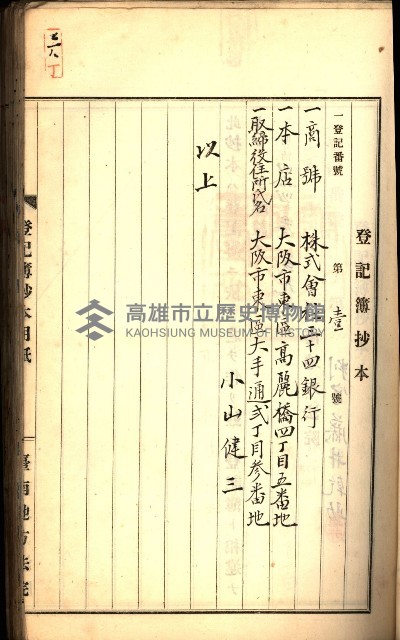 登記簿抄本
一登記番號 第壹號
一商號 株式會社三十四銀行
一本店 大阪市東區高麗橋四丁目五番地
一取締役住所氏名 大阪市東區大手通弍丁目参番地
小山健三
以上
登記簿抄本用紙
臺南地方法院
高雄市立歷史博物館
KAOHSIUNG MUSEUM OF HISTORY